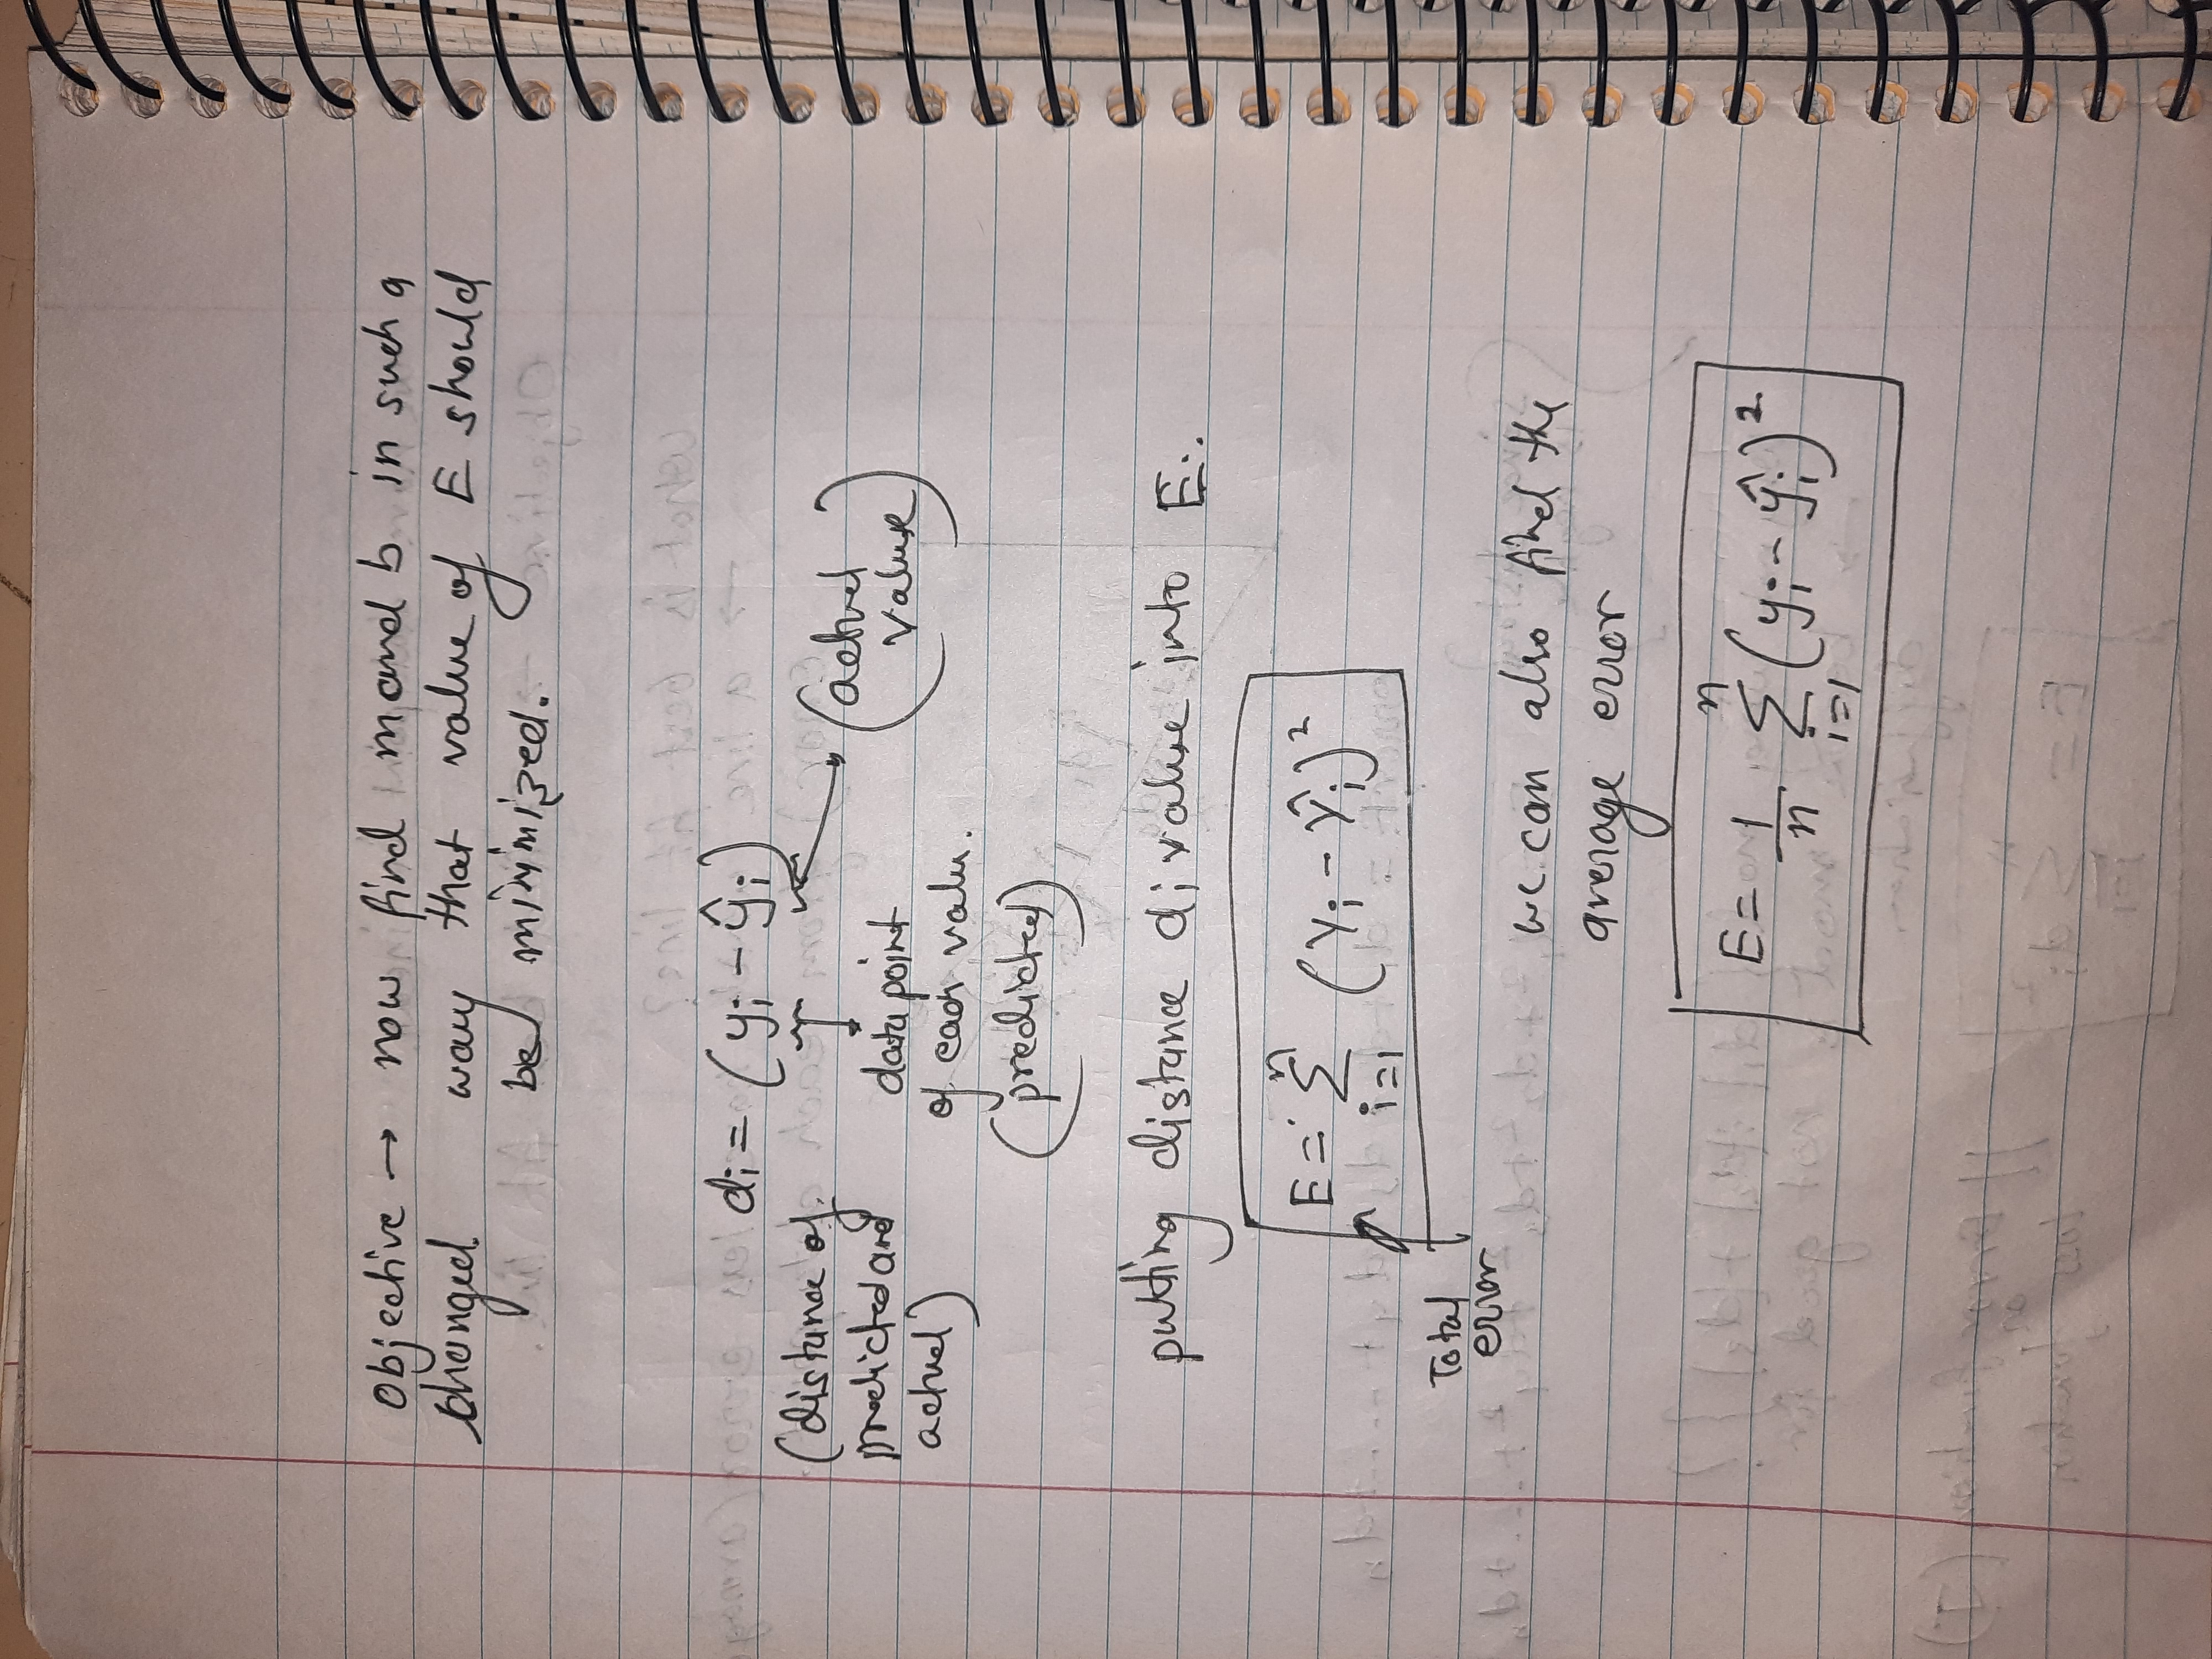 objective → now find m and b in such a
changed way that value of E should
be minimized.
di = (yi - ŷi)
(distance of
predicted and
actual)
data point
of each valu.
(predicted)
(actual
value)
putting distance di value into E:.
E = n∑i=1 (yi - ŷi)²
Total
error
we can also find the
average error
E = 1/n n∑i=1 (yi - ŷi)²